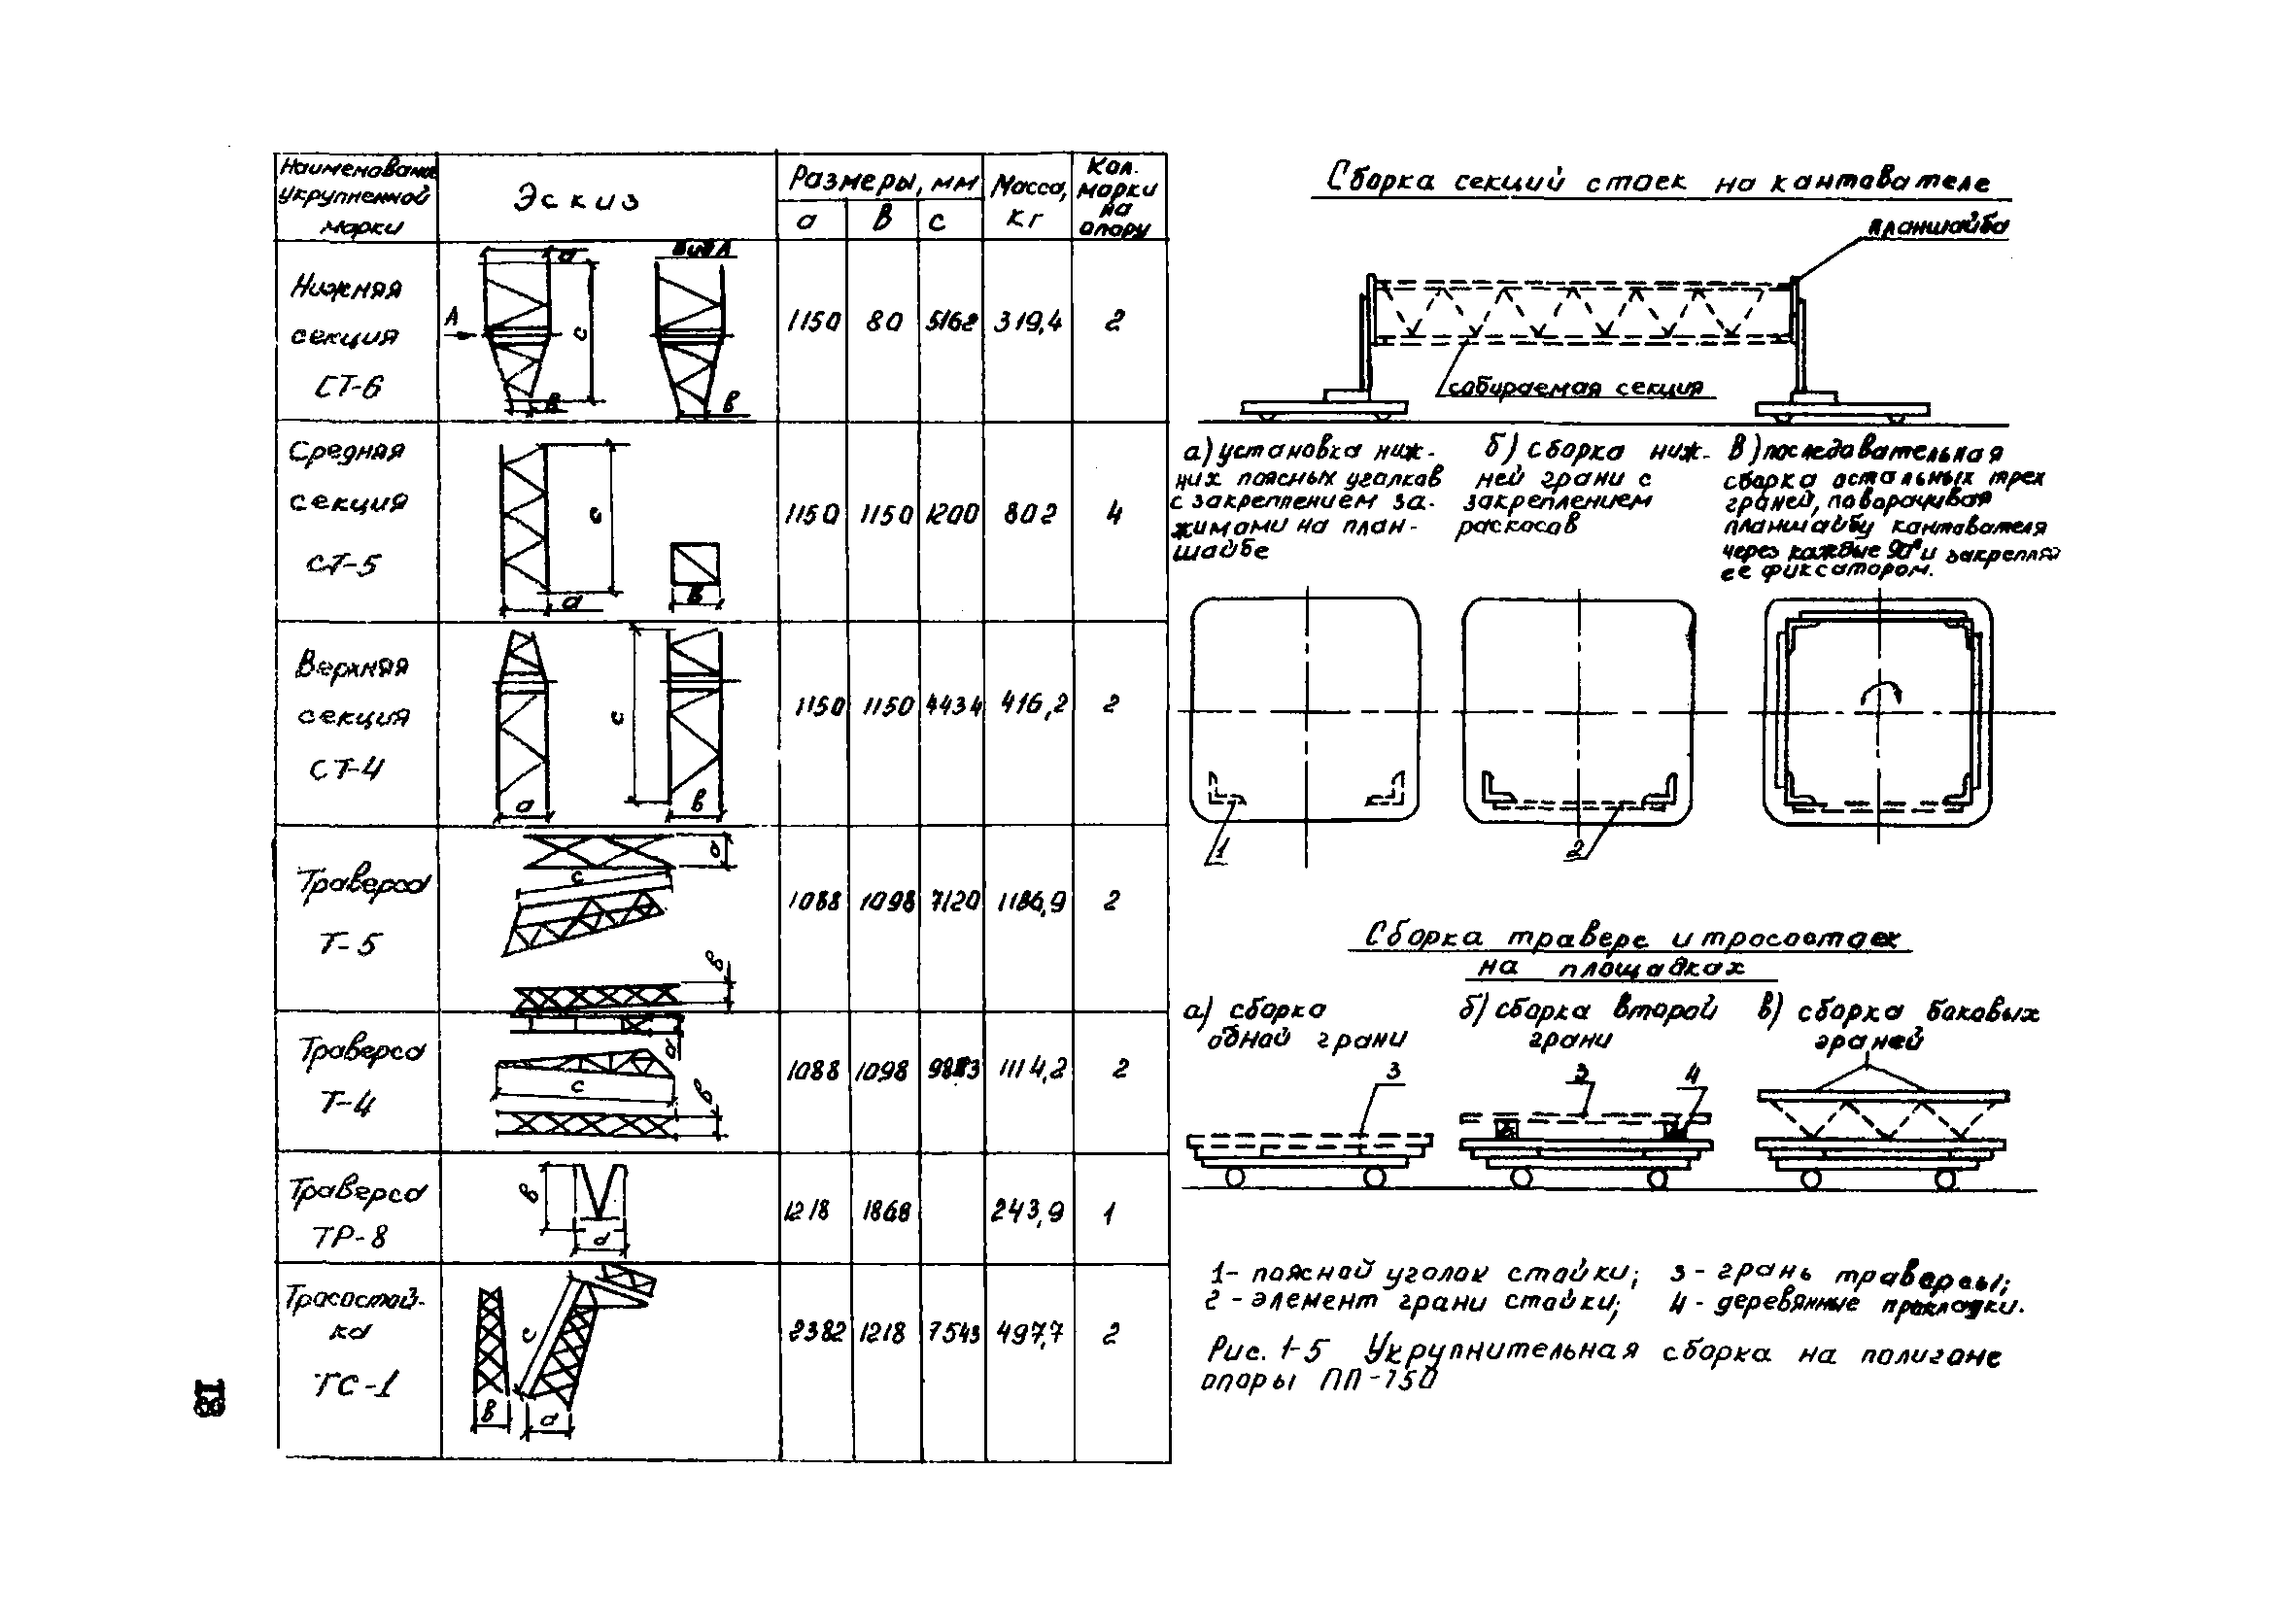 Наименование укрупненной марки | Эскиз | Размеры, мм | Масса, кг | Кол. марки на опору
а | в | с
Нижняя секция СТ-6 | 1150 | 80 | 5162 | 319,4 | 2
Вид А
А
а
с
в
в
Средняя секция СТ-5 | 1150 | 1150 | 1200 | 802 | 4
с
а
в
Верхняя секция СТ-4 | 1150 | 1150 | 4434 | 416,2 | 2
с
а
в
Траверса Т-5 | 1088 | 1098 | 7120 | 1186,9 | 2
а
с
в
Траверса Т-4 | 1088 | 1098 | 1114,2 | 2
а
с
в
Траверса ТР-8 | 1218 | 1868 | 243,9 | 1
в
а
Тросостойка ТС-1 | 2382 | 1218 | 7543 | 497,7 | 2
с
в
а
18
Сборка секций стоек на кантователе
планшайба
собираемая секция
а) установка ниж-
них поясных уголков
с закреплением за-
жимами на план-
шайбе
б) сборка ниж-
ней грани с
закреплением
раскосов
в) последовательная
сборка остальных трех
граней, поворачивая
планшайбу кантователя
через каждые 90° и закрепляя
ее фиксатором.
1
2
Сборка траверс и тросостоек
на площадках
а) сборка
одной грани
б) сборка второй
грани
в) сборка боковых
граней
3
3
4
1- поясной уголок стойки; 3 - грань траверсы;
2 - элемент грани стойки; 4 - деревянные прокладки.
Рис. 1-5 Укрупнительная сборка на полигоне
опоры ПП-750